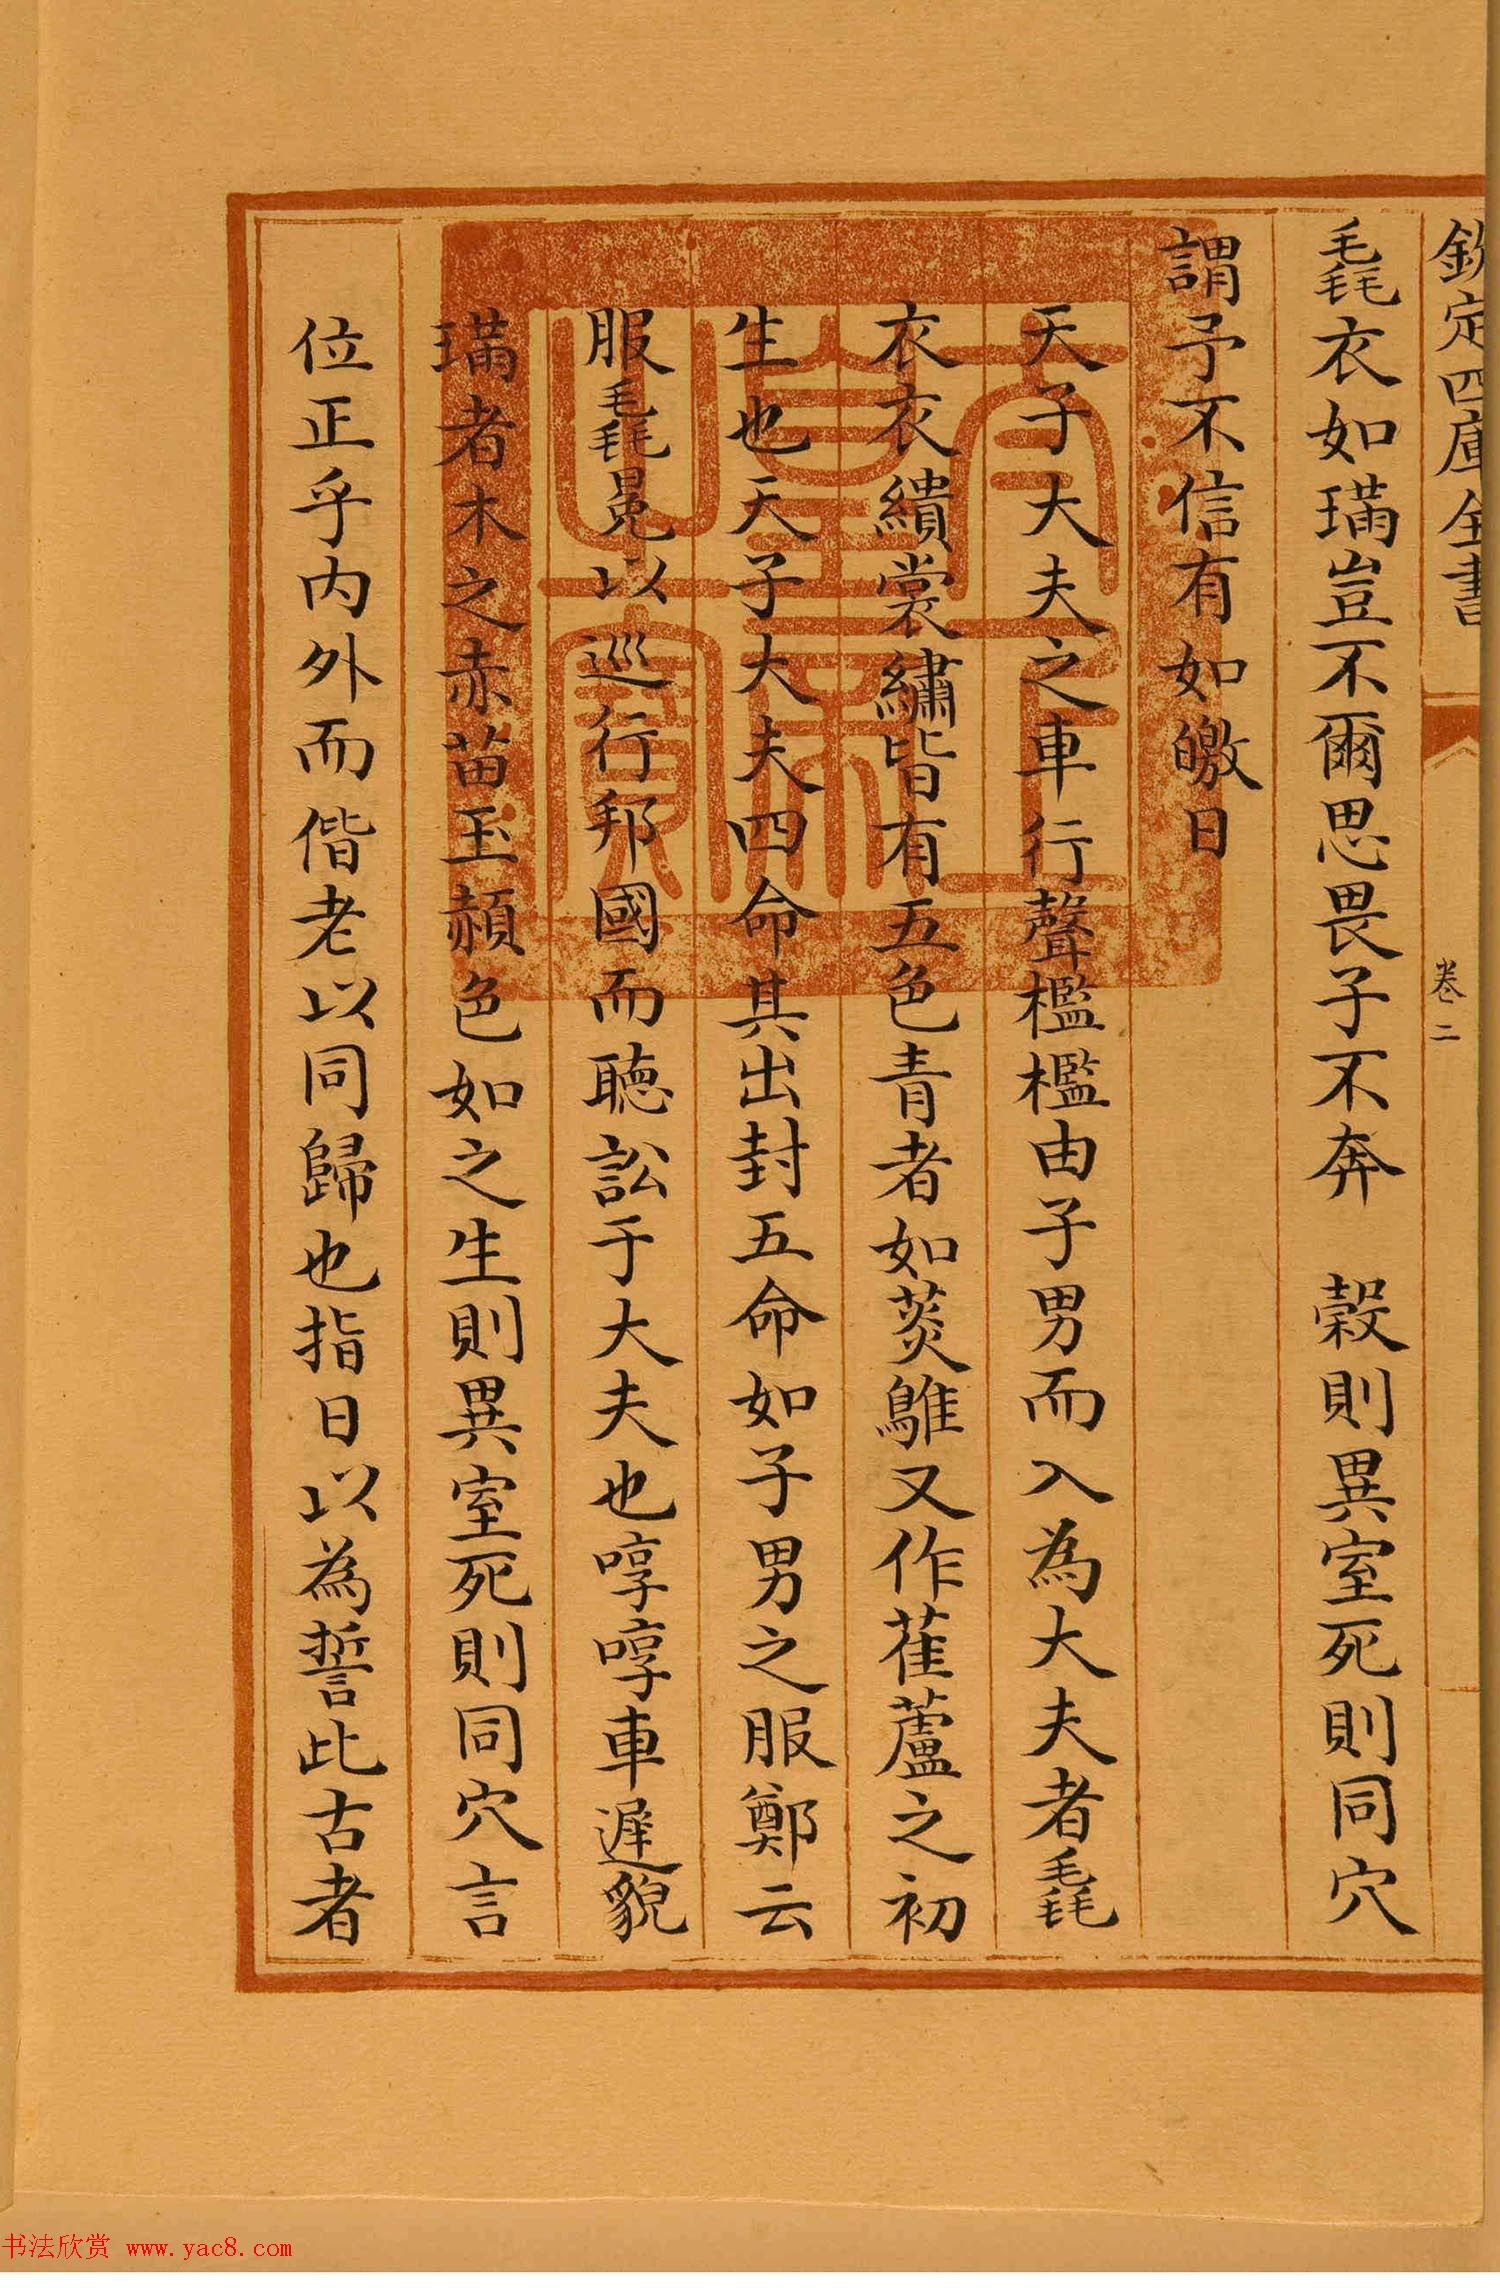 欽定四庫全書
卷二
毳衣如璊豈不爾思畏子不奔 穀則異室死則同穴
謂予不信有如皦日
天子大夫之車行聲檻檻由子男而入為大夫者毳
衣衣繢裳繡皆有五色青者如菼鵻又作萑蘆之初
生也天子大夫四命其出封五命如子男之服鄭云
服毳冕以巡行邦國而聽訟于大夫也啍啍車遲貌
璊者木之赤苗玉赬色如之生則異室死則同穴言
位正乎內外而偕老以同歸也指日以為誓此古者
太上皇帝之寶
书法欣赏 www.yac8.com